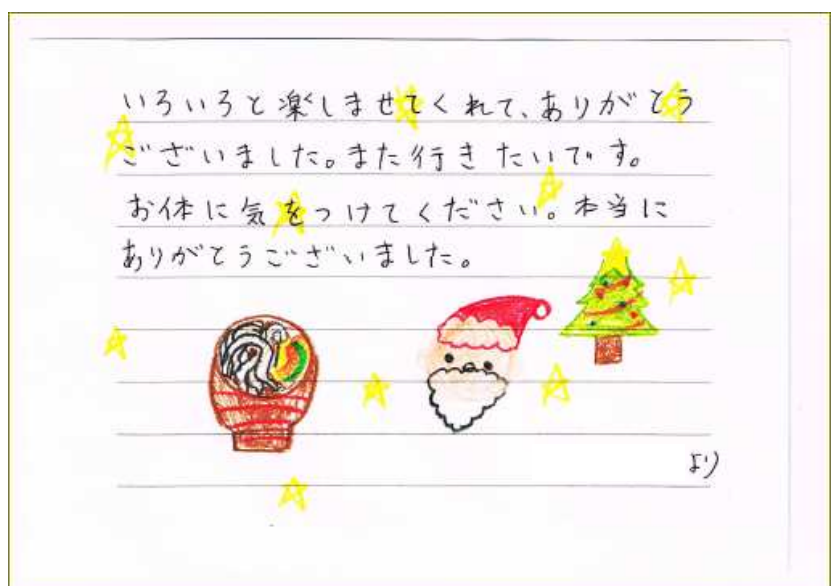 いろいろと楽しませてくれて、ありがとう
ございました。また行きたいです。
お体に気をつけてください。本当に
ありがとうございました。
より